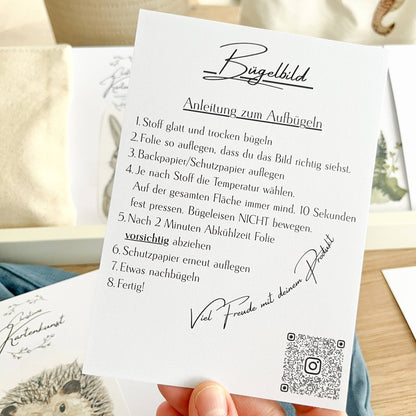 Bügelbild
Anleitung zum Aufbügeln
1. Stoff glatt und trocken bügeln
2. Folie so auflegen, dass du das Bild richtig siehst.
3. Backpapier/Schutzpapier auflegen
4. Je nach Stoff die Temperatur wählen.
Auf der gesamten Fläche immer mind. 10 Sekunden
fest pressen. Bügeleisen NICHT bewegen.
5. Nach 2 Minuten Abkühlzeit Folie
vorsichtig abziehen
6. Schutzpapier erneut auflegen
7. Etwas nachbügeln
8. Fertig!
Viel Freude mit deinem Produkt
Kartenkunst